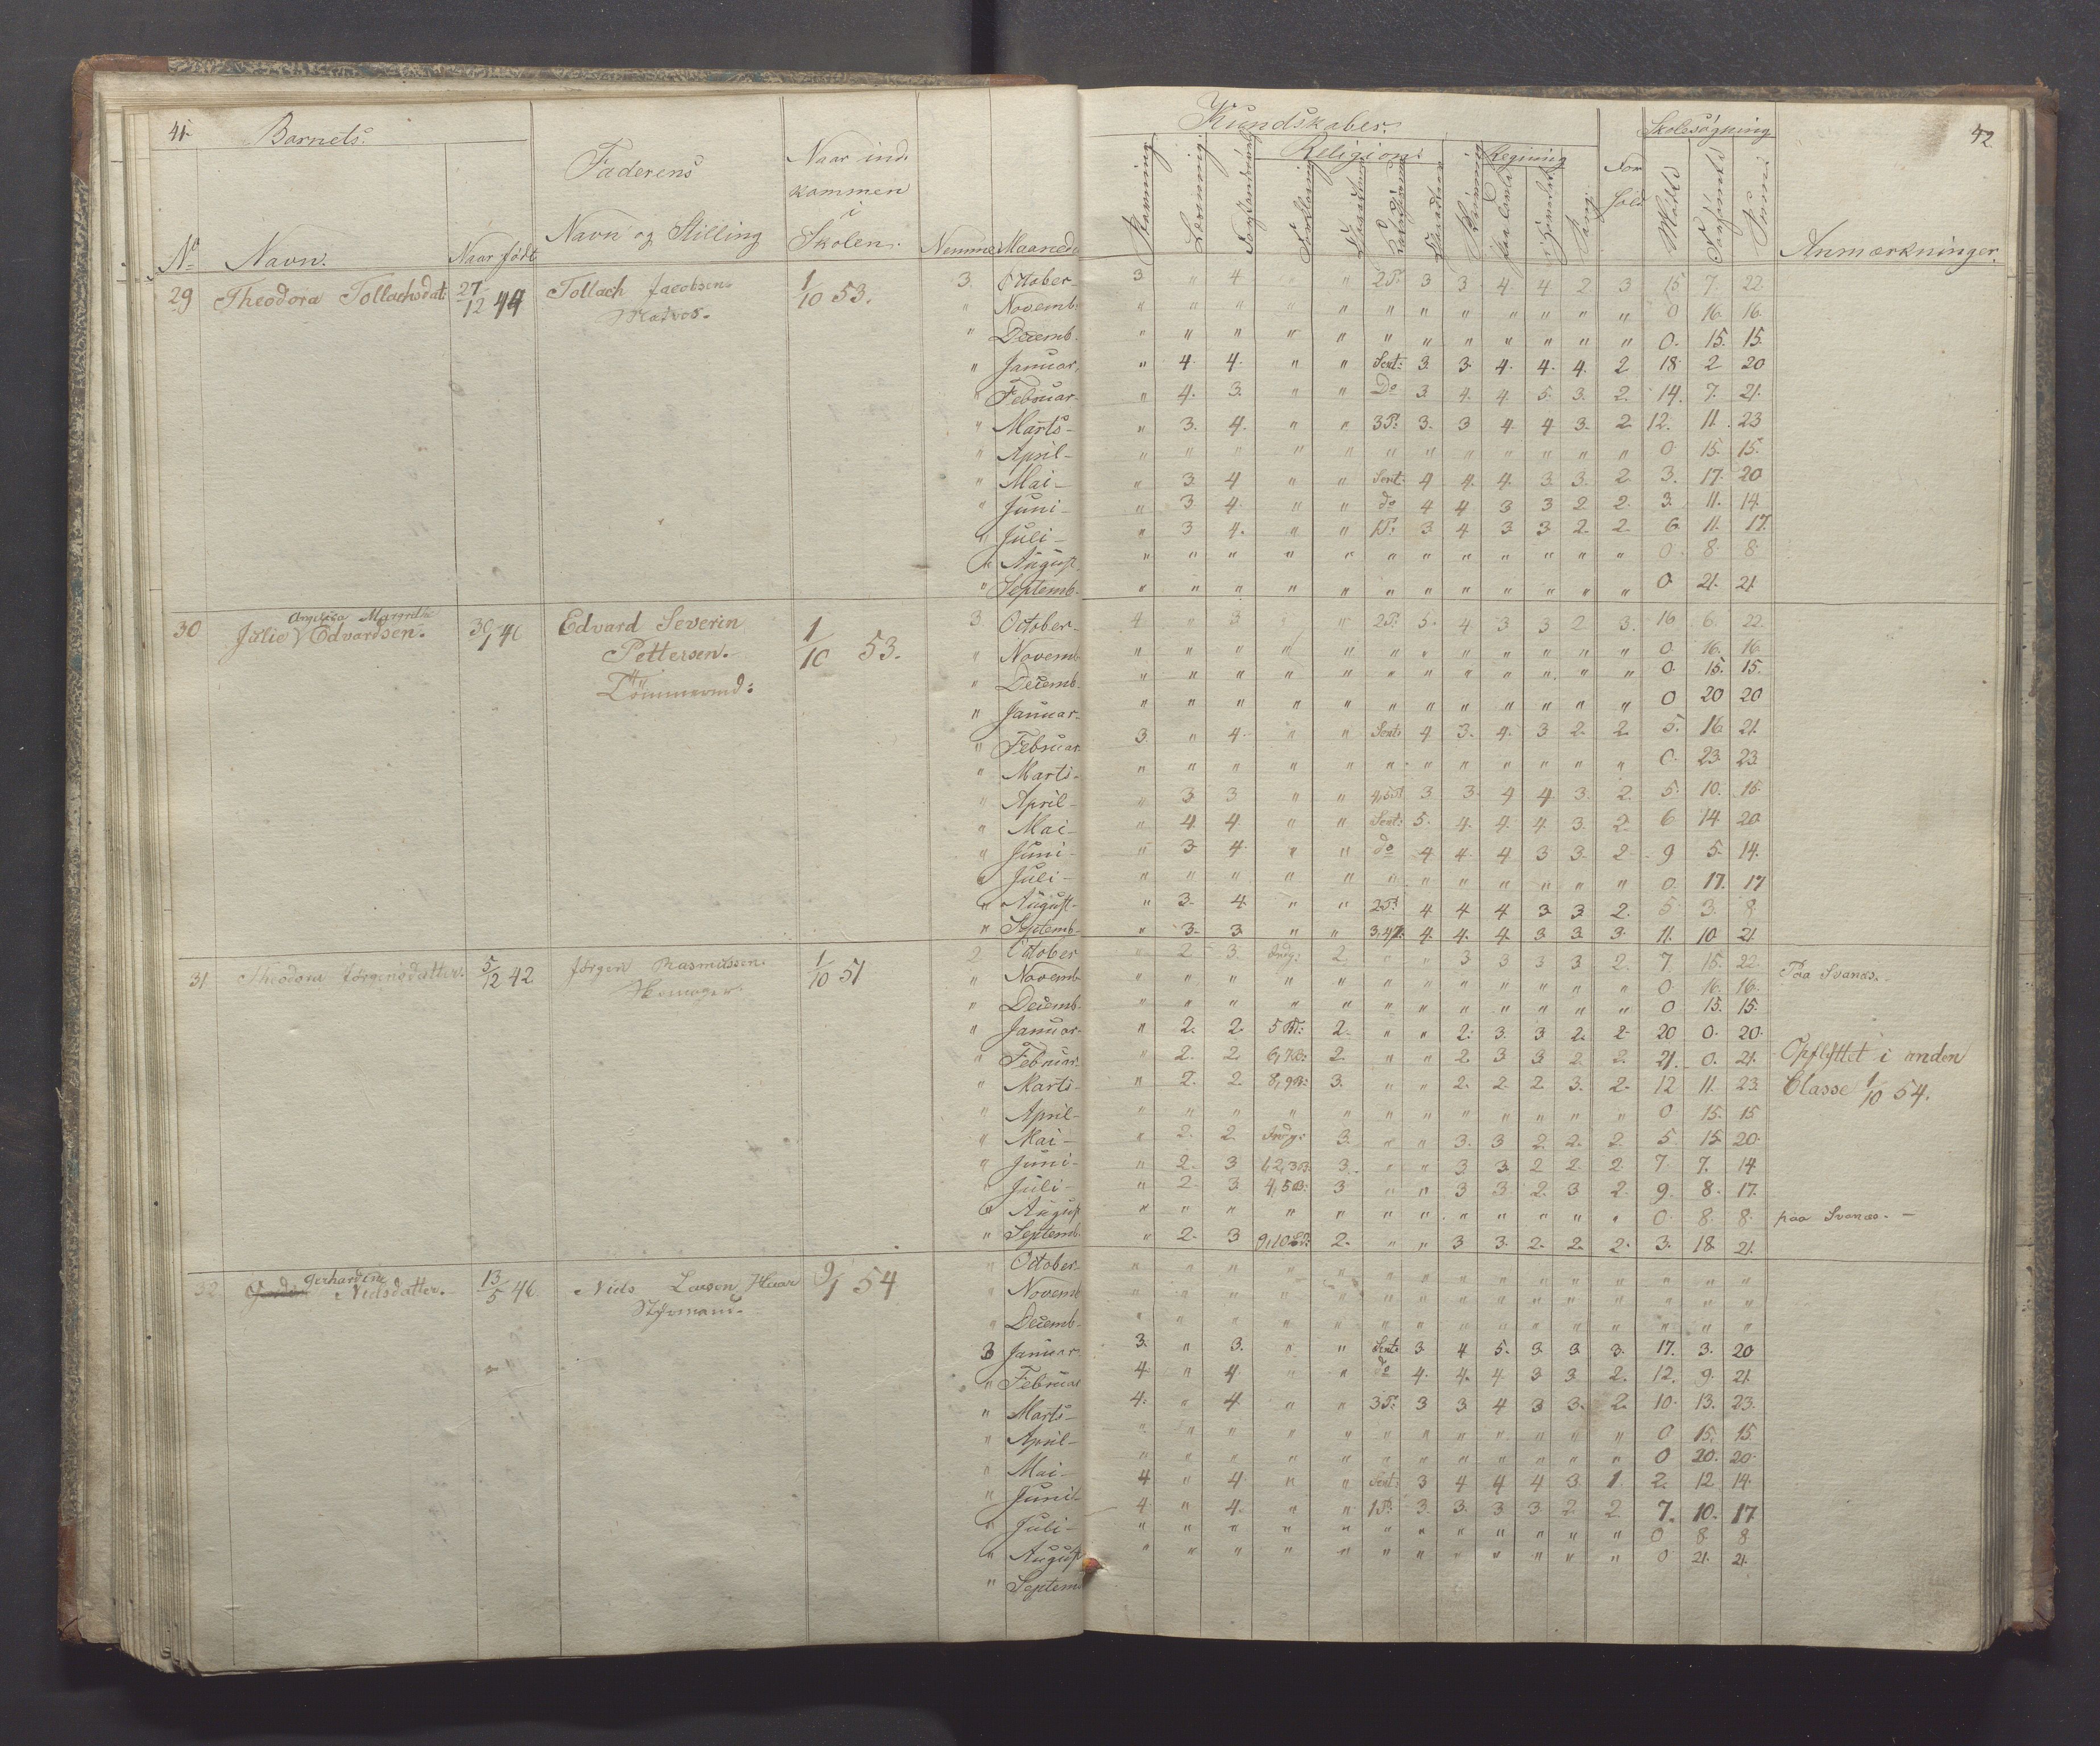 41.
Barnets.
Faderens
Naar ind-
kommen
i
Skolen.
No Navn. Naar født Navn og Stilling Nemme Maaneder
29 Theodora Tollachsdat: 27/12 44 Tollach Jacobsen. 1/10 53. 3. October
Matros. " Novemb:
" Decemb.
" Januar.
" Februar-
" Marts-
" April-
" Mai-
" Juni-
" Juli-
" August.
" Septemb-
30 Julie Edvardsen. 30/1 46 Edvard Severin 1/10 53. 3. October-
Pettersen. " Novemb
Tömmermd: " Decemb.
" Januar-
" Februar
" Marts-
" April-
" Mai-
" Juni-
" Juli-
" August-
" Septemb-
31 Theodora Jörgensdatter. 5/12 42 Jörgen Rasmussen. 1/10 51 2 October
" Novemb
" Decemb-
" Januar-
" Februar.
" Marts-
" April-
" Mai-
" Juni-
" Juli-
" August
" Septemb.
Gerhardine
32 Nielsdatter. 13/5 46. Niels Larsen 9/1 54 " October-
Styrmand. " Novemb
" Decemb-
3 Januar.
" Februar
" Marts-
" April-
" Mai-
" Juni-
" Juli-
" August
" Septemb
42
Kundskaber.
Religion. Regning Skolesøgning
Anmærkninger.
3 " 4 " 2P. 3 3 4 4 2 3 15 7. 22.
" " " " " " " " " " " " 0 16. 16.
" " " " " " " " " " " " 0. 15. 15.
" 4 4. " " Sent: 3. 3. 4. 4. 4. 2 18. 2 20
" 4. 3. " " Do 3. 4. 4. 5. 3. 2. 14. 7. 21.
" 3. 4. " " 3P: 3. 3 4 4 3. 2. 12. 11. 23
" " " " " " " " " " " " 0. 15. 15.
" 3 4 " " Sent: 4 4. 4. 3. 3. 2. 3. 17. 20
" 3 4. " " do 4 4 3 3 2. 2. 3. 11. 14.
" 3 4. " " 1P: 3 4 3 3 2. 2. 6. 11. 17.
" " " " " " " " " " " " 0. 8. 8.
" " " " " " " " " " " " 0. 21. 21
4 " 3 " " 2P. 5. 4 3 3 2 3. 16 6. 22.
" " " " " " " " " " " " 0. 16. 16.
" " " " " " " " " " " " 0. 15. 15.
" " " " " " " " " " " " 0 20 20
3. " 4. " " Sent: 4 3. 4. 3 2. 2. 5. 16 21.
" " " " " " " " " " " " 0. 23. 23.
" 3 3 " " 3 3. 4 4 3. 2. 5. 10. 15.
" 4. 4 " " Sent: 5. 4. 4. 4. 3. 2. 6 14 20.
" 3. 4. " " do 4 4. 4 3 3. 2. 9 5. 14.
" " " " " " " " " " " " 0. 17. 17
" 3. 4. " " 2P. 4 4 4 3. 3 2. 5 3. 8
" 3. 3 " " 4. 4. 4. 3 3. 3. 11. 10 21.
" 2 3. Indg: 2. " " 3 3 3 3 2. 7 15. 22 Paa Svanæs.
" " " " " " " " " " " " 0. 16. 16.
" " " " " " " " " " " " 0 15. 15.
" 2. 2. 2. " " 2. 3. 3 2. 2. 20 0. 20.
" 2. 2. 2. " " 2. 3 3 2 2. 21. 0. 21. Opflyttet i anden
" 2. 2. 3. " " 2. 2. 2. 3. 2. 12 11. 23. Classe 1/10 54.
" " " " " " " " " " " " 0. 15. 15
" 2. 2. Indg: 3. " " 3. 3 2. 2. 2. 5 15. 20.
" 2. 3. 3. " " 3 3. 2 2. 2. 7. 7. 14
" 2. 3. 3 " " 3 3 2. 3 2. 9. 8. 17.
" " " " " " " " " " " " 0. 8. 8. paa Svanæs. -
" 2. 3 2. " " 3 3. 2. 2. 2. 3. 18. 21.
" " " " " " " " " " " " " " "
" " " " " " " " " " " " " " "
" " " " " " " " " " " " " " "
3. " 3. " " Sent: 3. 4 5. 3. 3 3. 17. 3. 20
4. " 4 " " do 4. 4. 4 3 3 2. 12. 9. 21.
4. " 4 " " 3P: 3 3. 4 3 3. 2. 10. 13. 23.
" " " " " " " " " " " " 0 15. 15
" " " " " " " " " " " " 0 20. 20.
4 " 4 " " Sent: 3 4 4 4 3. 1 2. 12. 14.
4. " 4. " " 1P: 3. 3. 3 3. 2. 2. 7. 10. 17.
" " " " " " " " " " " " 0 8. 8
" " " " " " " " " " " " 0 21. 21.